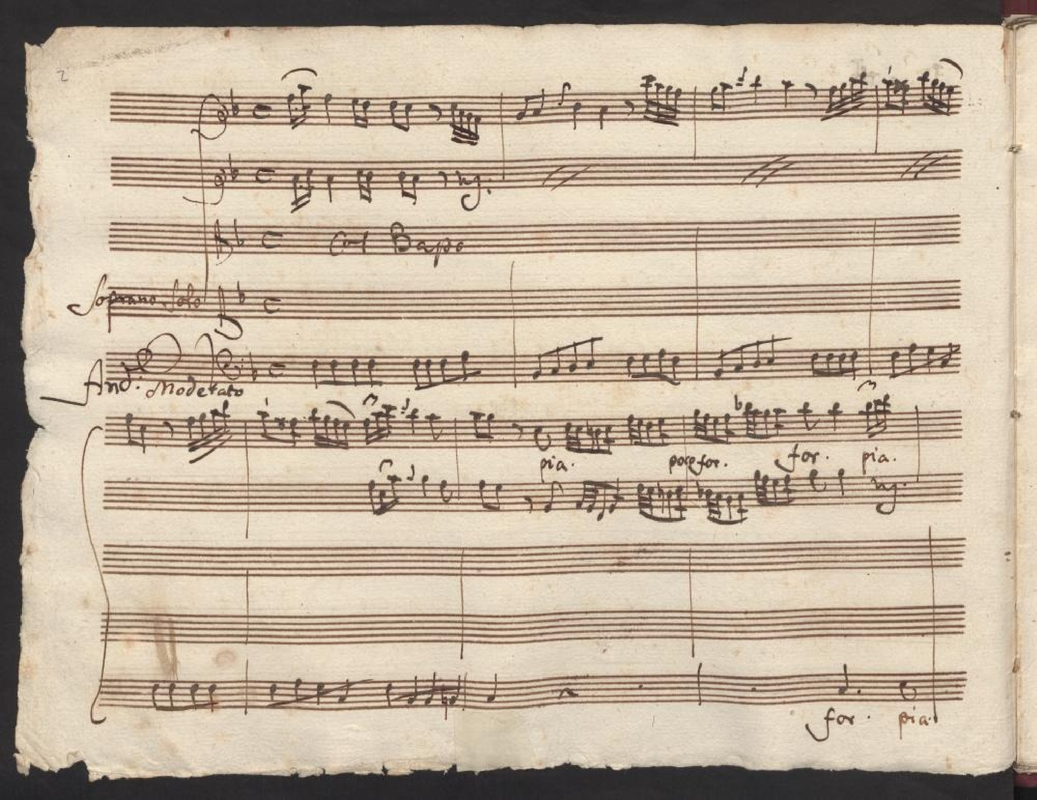 2
Col Basso
Soprano Solo
And. Moderato
pia. poco for. for. pia.
for. pia.